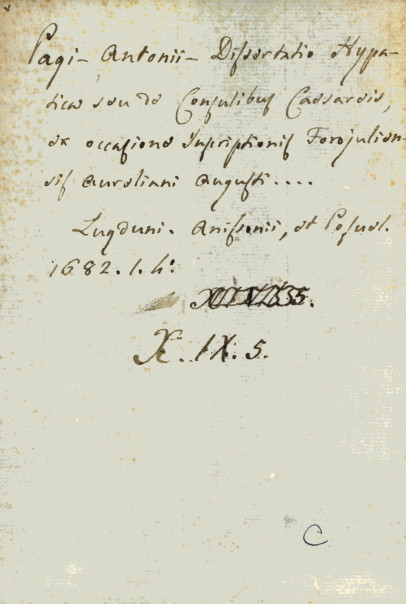 Pagi - Antonii - Dissertatio Hypa-
ticae seu de Consulibus Caesareis,
ex occasione Inscriptionis Forojulien-
sis Aureliani Augusti ....
Lugduni. Anissonii, et Posuel.
1682. 1. 4º.
X. IX. 5.
C